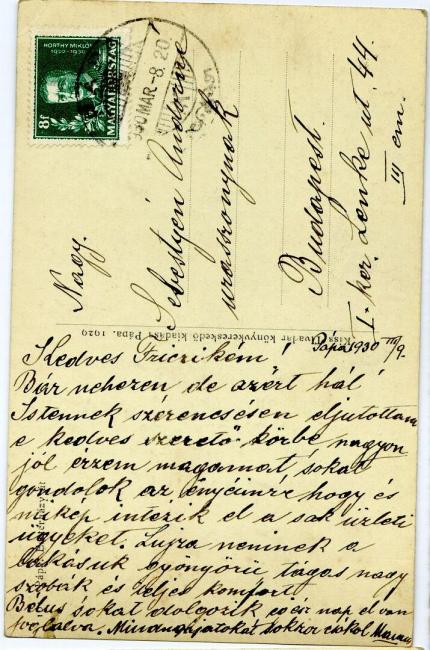 HORTHY MIKLÓS
1920-1930
MAGYARORSZÁG
8f
930 MAR-8. 20
Nagy.
Sebestyén Andorné
urasszonynak
Budapest.
I. ker. Lenke ut. 44.
III em.
Kiss Tivadar könyvkereskedő kiadása Pápa. 1929
Pápa 1930 III/9.
Kedves Friczikém!
Bár nehezen de azért hál'
Istennek szerencsésen eljutottam
e kedves szerető körbe nagyon
jól érzem magamat sokat
gondolok az enyéimre hogy és
mikép intézik el a sok üzleti
ügyeket. Lujza neninek a
lakásuk gyönyörű tágas nagy
szobák és teljes komfort
Bélus sokat dolgozik egész nap el van
foglalva, Mindnyájatokat sokszor csókol Mama